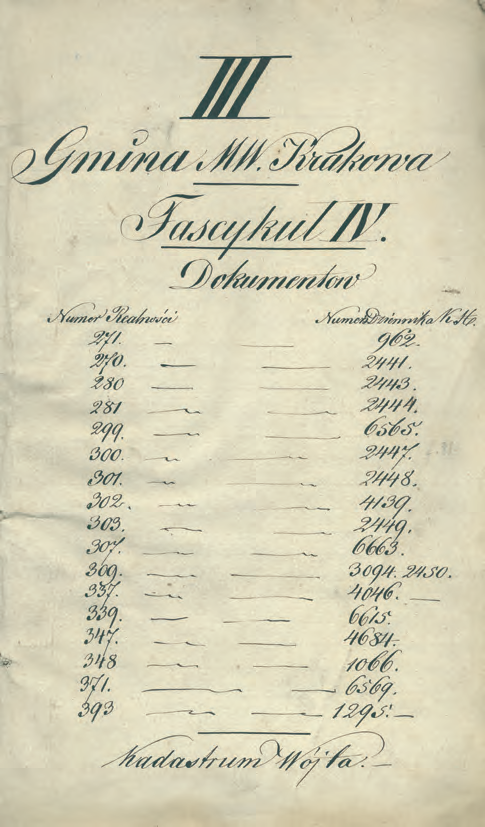 III
Gmina MW. Krakowa
Fascykul IV.
Dokumentow
Numer Realności Numer Dziennika K. Hp.
271. — — 962.
270. — — 2441.
280 — — 2443.
281 — — 2444.
299. — — 6565.
300. — — 2447.
301. — — 2448.
302. — — 4139.
303. — — 2449.
307. — — 6663.
309. — — 3094. 2450.
337. — — 4046. —
339. — — 6615.
347. — — 4684.
348 — — 1066.
371. — — 6569.
393 — — 1295. —
Kadastrum Wójta. —